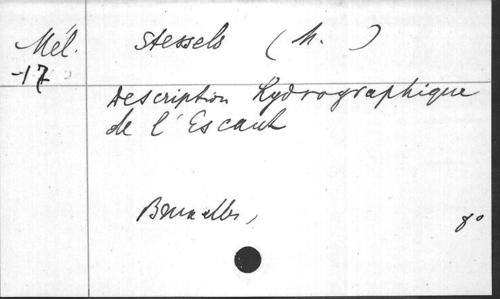 Mél. Stessels (M. )
-17
Description Hydrographique
de l'Escaut
Bruxelles, 8°